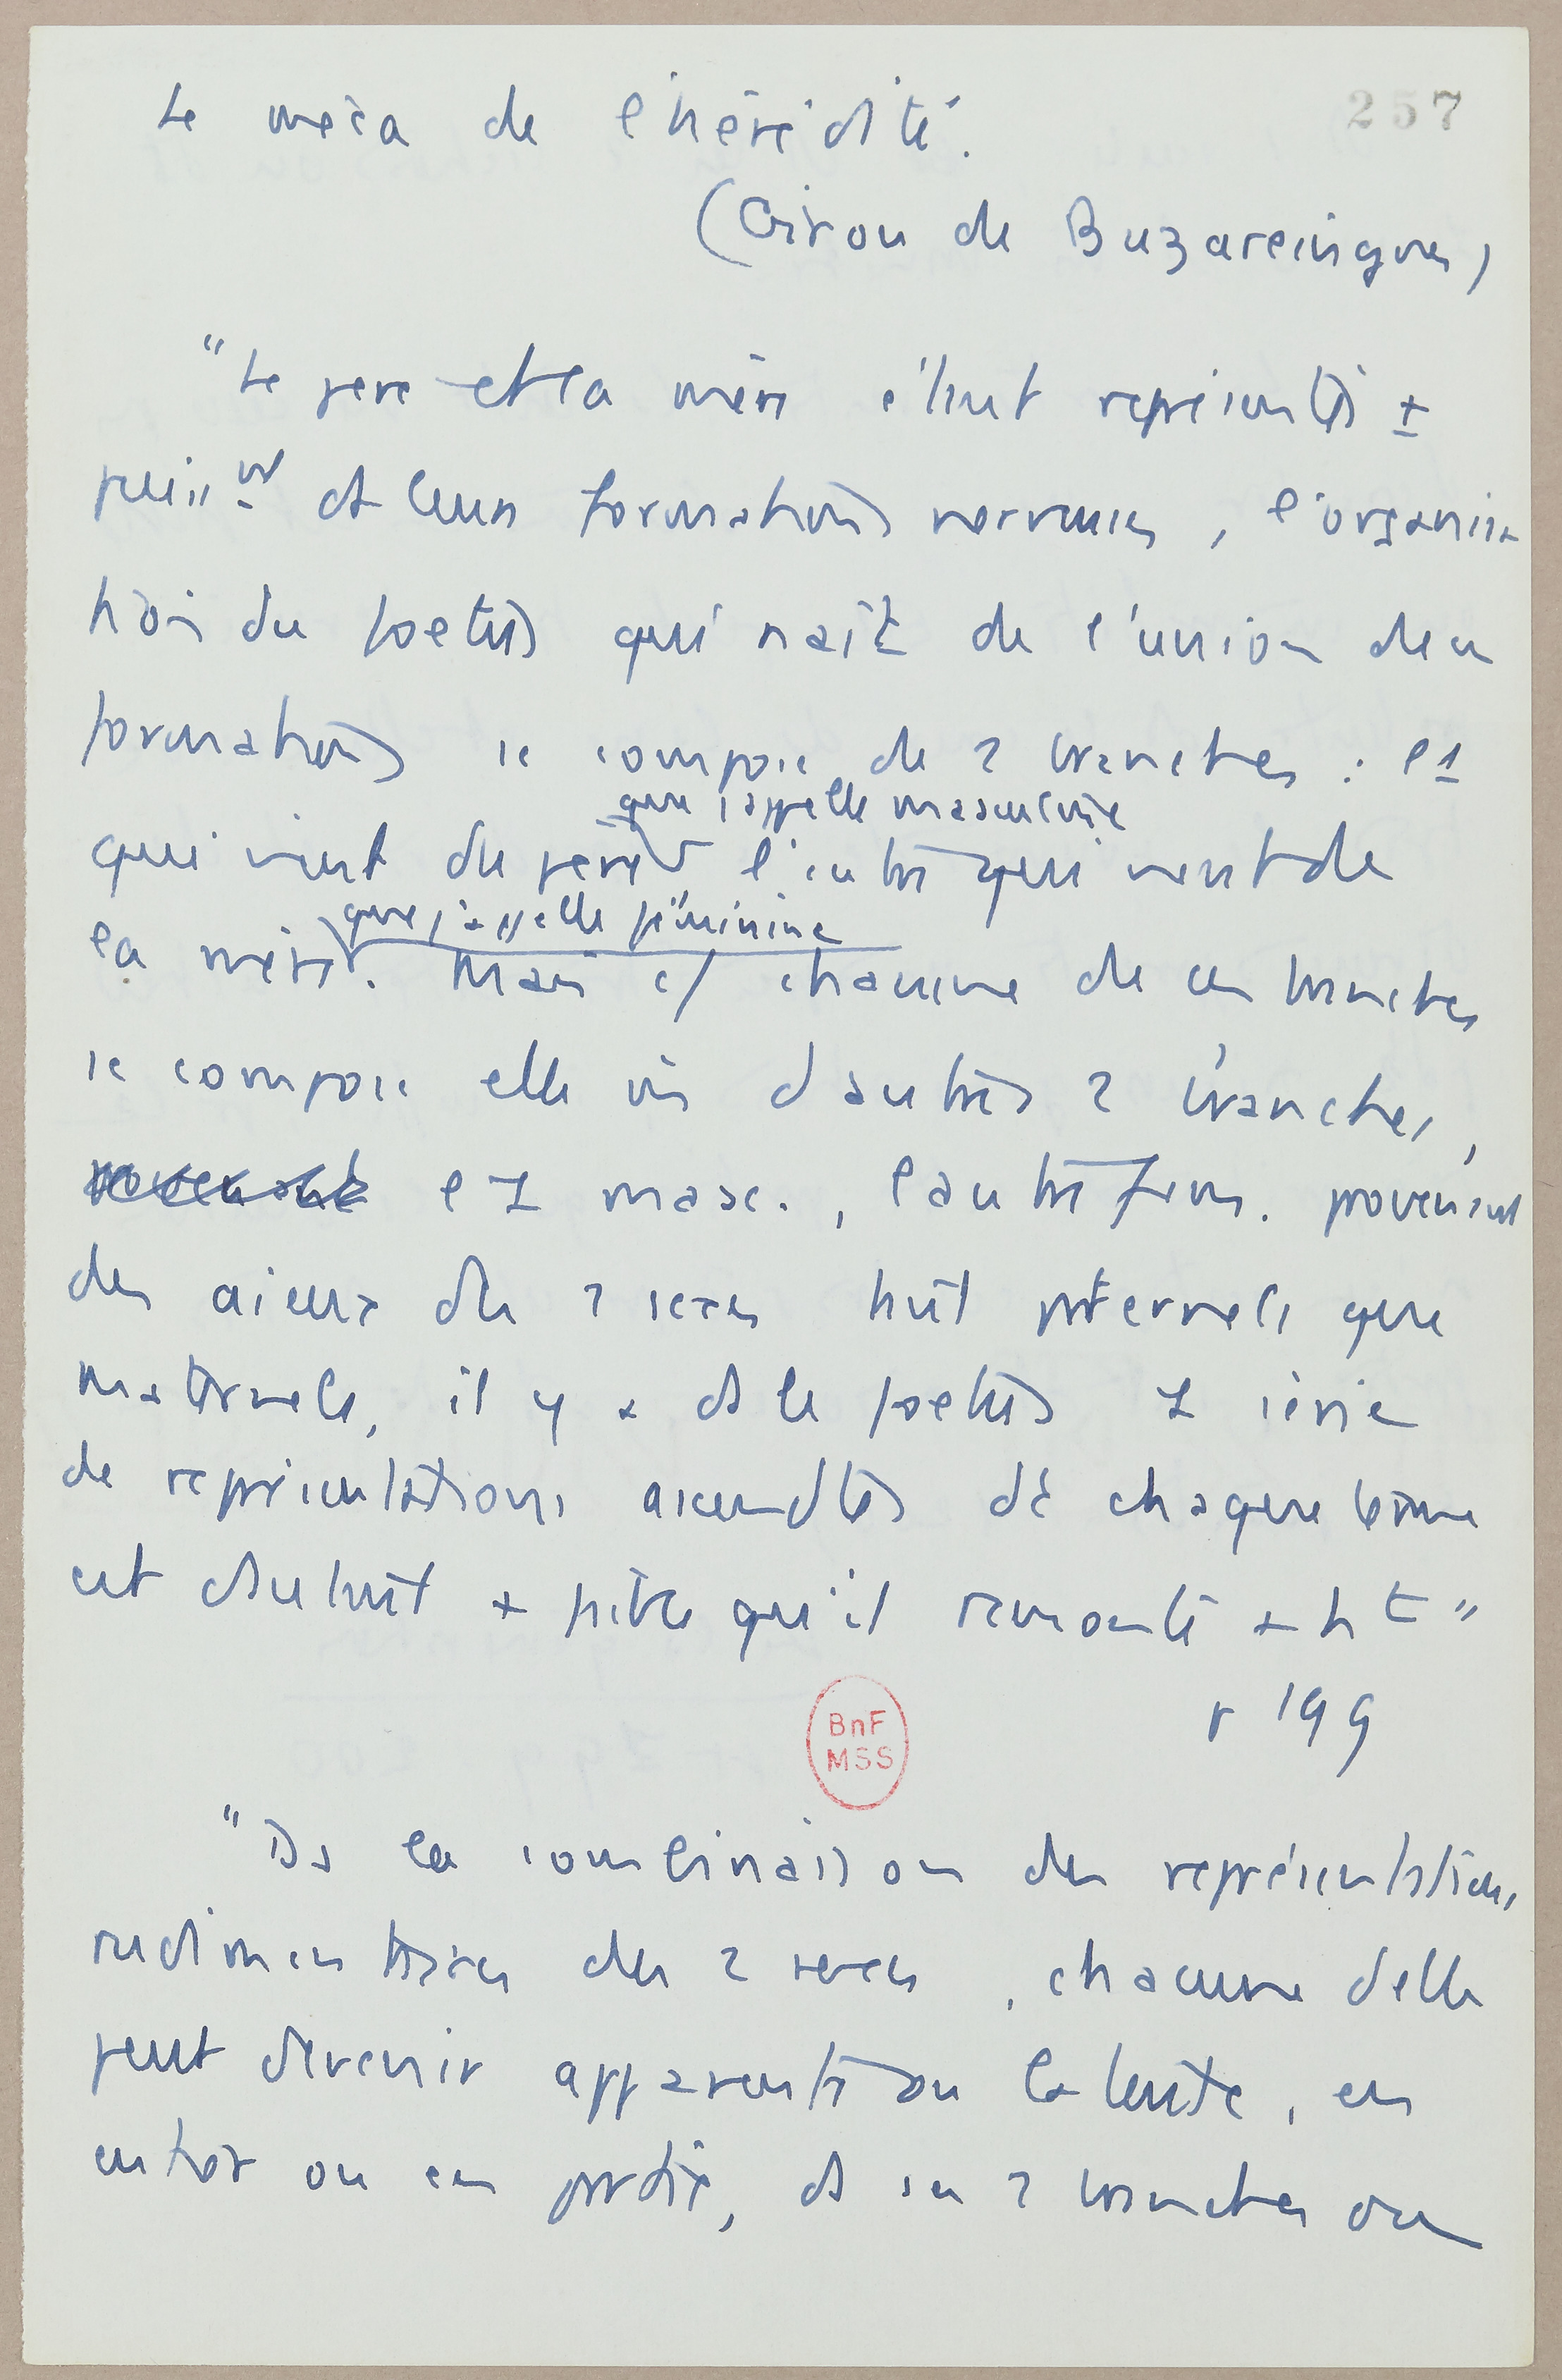 Le méca de l'hérédité.
257
(Girou de Buzareingues)
"Le père et la mère étant représentés ±
puissmt ds leurs formations nerveuses, l'organisa
tion du foetus qui naît de l'union de ces
formations se compose de 2 branches : l'1
que j'appelle masculine
qui vient du père, l'autre qui vient de
que j'appelle féminine
la mère. Mais c/ chacune de ces branches
se compose elle m d'autres 2 branches,
l'1 masc., l'autre fem. provenant
des aïeux des 2 sexes tant paternels que
maternels, il y a ds le foetus 1 série
de représentations ascendtes dt chaque terme
est d'autant + faible qu'il remonte + ht"
p 199
BnF
MSS
"Ds la combinaison des représentations
rudimentaires des 2 sexes, chacune d'elles
peut devenir apparente ou latente, en
entier ou en partie, ds ses 2 branches ou